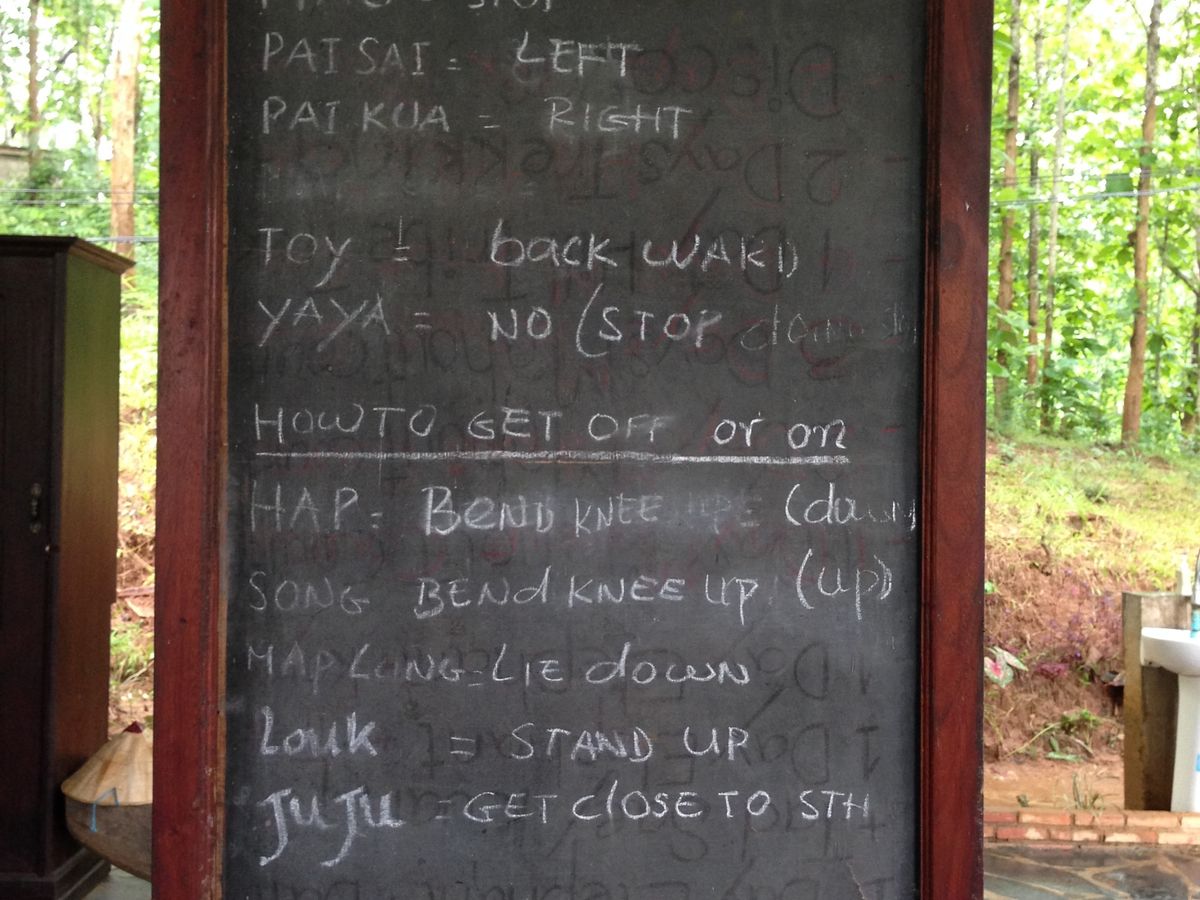 PAI SAI = LEFT
PAI KUA = RIGHT
TOY = back WARD
YAYA = NO (STOP
HOW TO GET OFF or on
HAP = BEND KNEE (down
SONG BENd KNEE UP (up)
MAP LONG = LIE down
Louk = STAND UP
JUJU = GET close TO STH